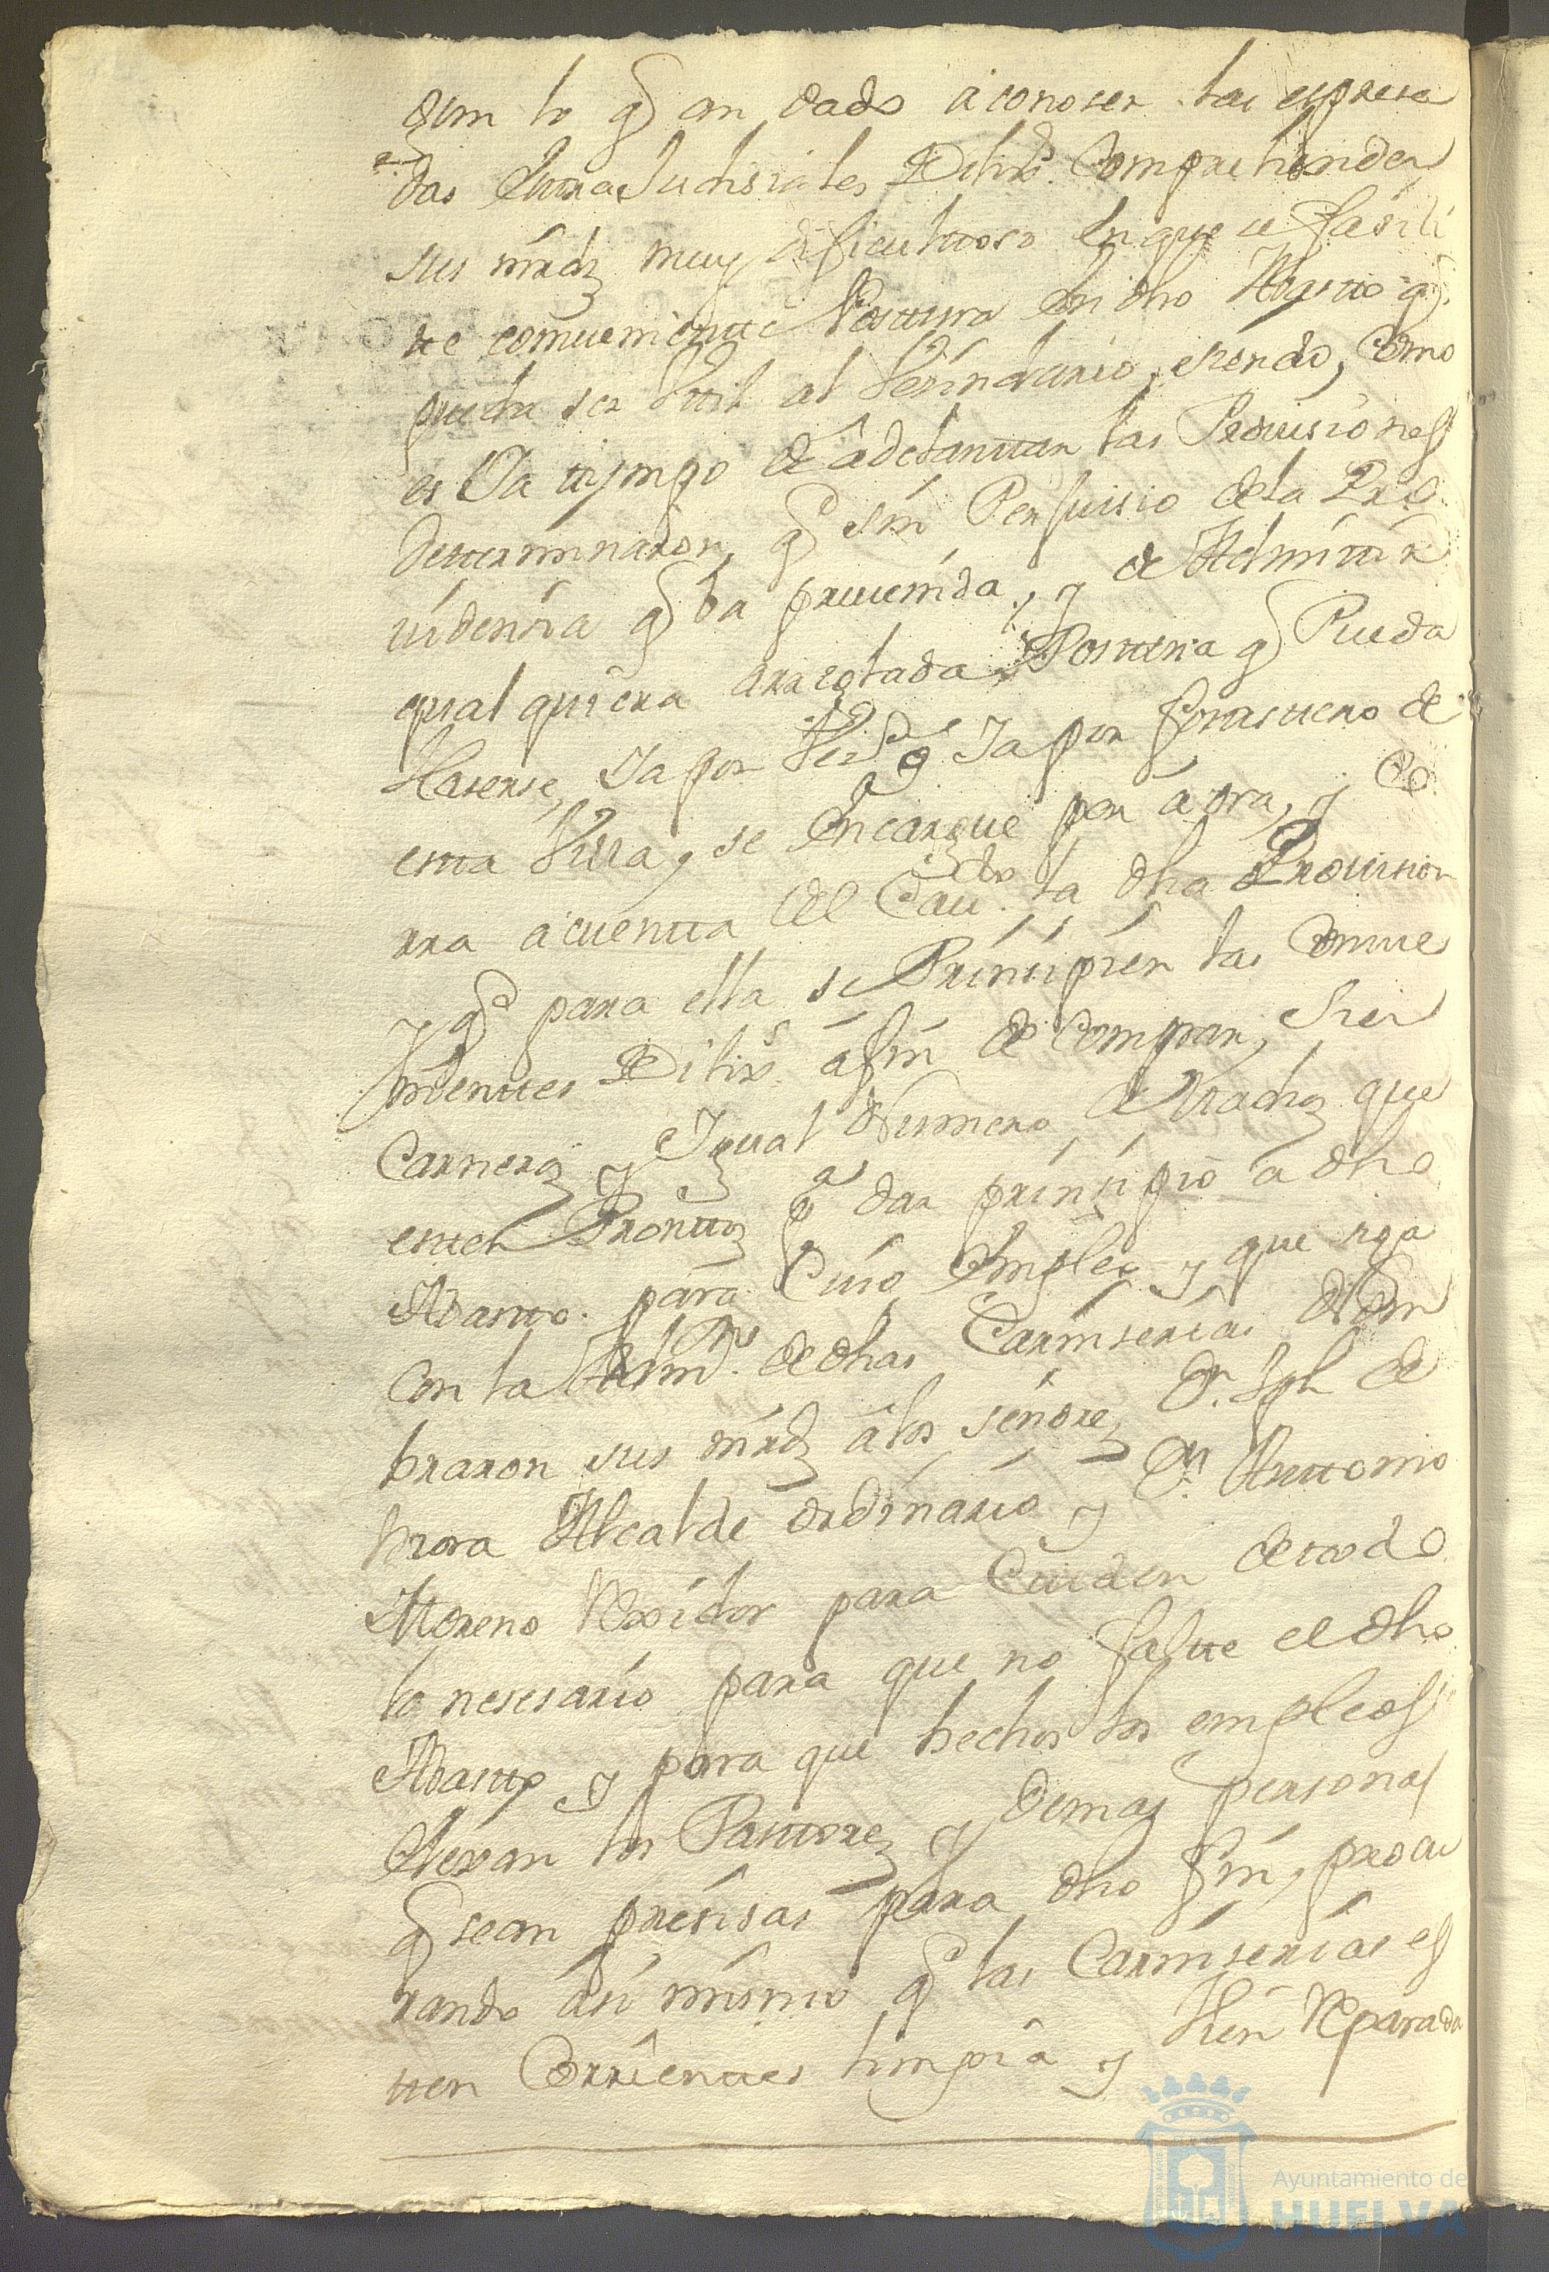 gun lo q.e an dado a conoser las expresa
das extraJudisiales Dilix.s Comprehenden
sus mrds muy dificultoso en que se fasili
tte comueniente Posttura en dho Abastto q.e
pueda ser Vttil al Vesindario, siendo, Como
es Ya tijempo de adelanttar las Prouisiones
Determinaron, q.e sin Perjuisio de la Pro
uidensia q.e ba preuenida, y de Admittir
qualquiera arreglada Posttura q.e Pueda
Haserse, Ya por Vez.o o Ya por forasttero de
estta Villa, se Encargue por aora, y Co
rra a cuentta del Cau.do la dha Prouision
y q.e para ella se Prinsipien las Comue
nienttes Dilix.s a fin de Comprar, Sien
Carneros y Ygual Numero de Machos que
estten Pronttos p.a dar prinsipio a dho
Abastto. para Cuio Empleo y que siga
Con la Adm.on de dhas Carniserias Nom
braron sus mrds a los señores D.n Jph de
Mora Alcalde ordinario y D.n Anttonio
Moreno Rexidor para Cuiden de ttodo
lo nesesario para que no faltte el dho
Abastto y para que hechos los empleos
elexan los Pasttores y Demas personas
q.e sean presisas para dho fin, procu
rando asi mismo q.e las Carniserias es
tten Corrienttes limpia y Vien Reparada
Ayuntamiento de
HUELVA